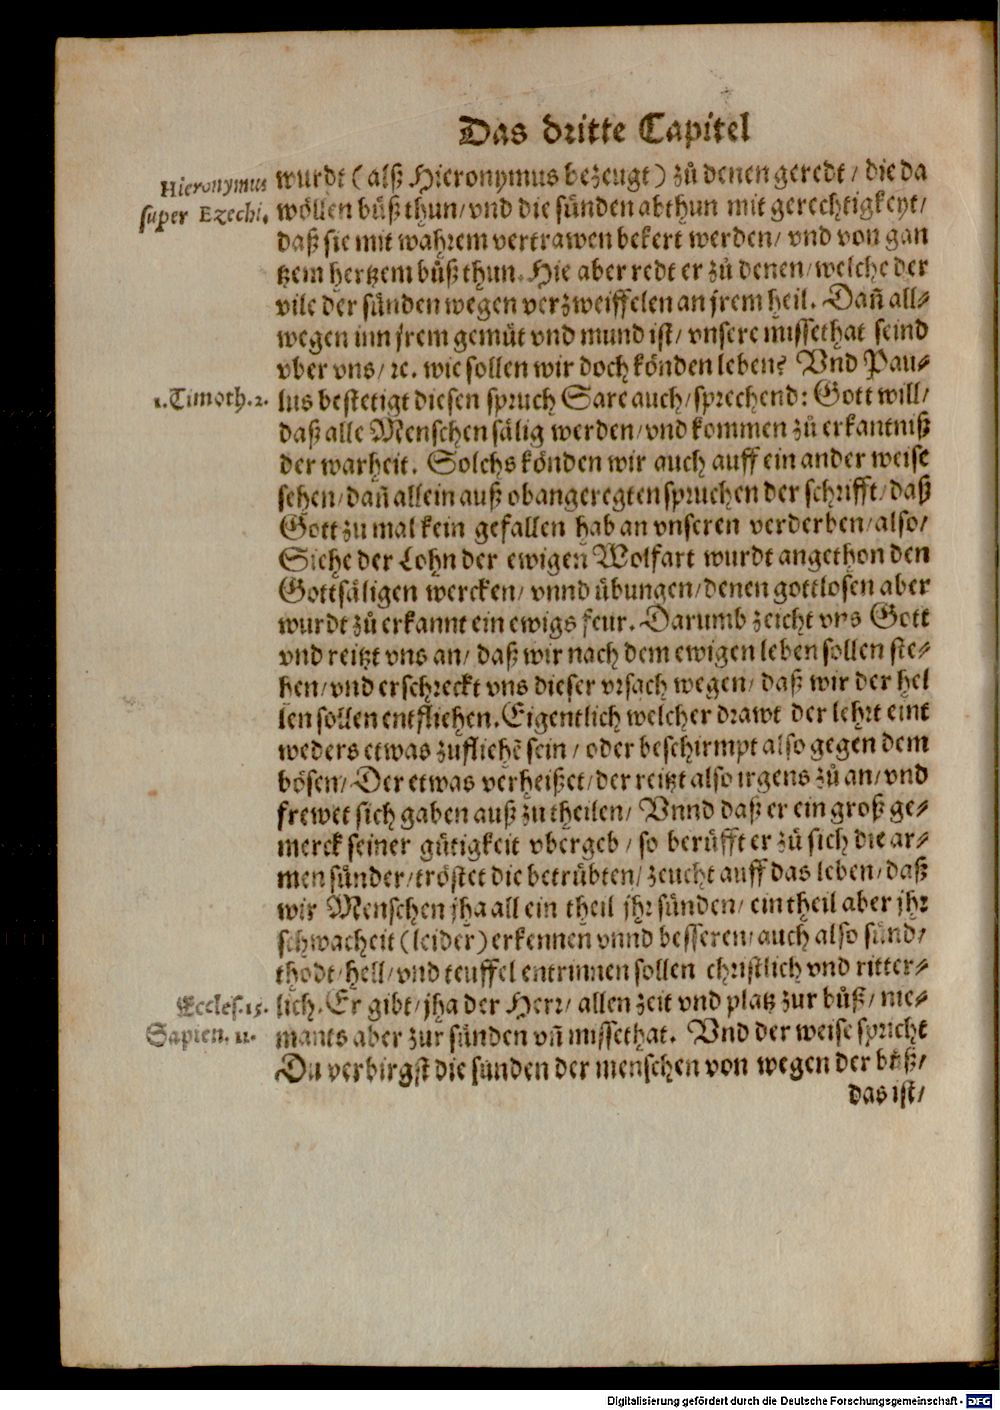 Das dritte Capitel
Hieronymus
super Ezechi.
wurdt (alß Hieronymus bezeugt) zů denen geredt / die da
wöllen bůß thun / vnd die sünden abthun mit gerechtigkeyt /
daß sie mit wahrem vertrawen bekert werden / vnd von gan
tzem hertzem bůß thun. Hie aber redt er zů denen / welche der
vile der sünden wegen verzweiffelen an jrem heil. Dañ all-
wegen inn jrem gemüt vnd mund ist / vnsere missethat seind
vber vns / ꝛc. wie sollen wir doch könden leben? Vnd Pau-
1. Timoth. 2.
lus bestetigt diesen spruch Sare auch / sprechend: Gott will /
daß alle Menschen sälig werden / vnd kommen zů erkantniß
der warheit. Solchs könden wir auch auff ein ander weise
sehen / dañ allein auß obangeregten spruchen der schrifft / daß
Gott zu mal kein gefallen hab an vnseren verderben / also /
Siehe der Lohn der ewigen Wolfart wurdt angethon den
Gottsäligen wercken / vnnd übungen / denen gottlosen aber
wurdt zů erkannt ein ewigs feur. Darumb zeicht vns Gott
vnd reitzt vns an / daß wir nach dem ewigen leben sollen ste-
hen / vnd erschreckt vns dieser vrsach wegen / daß wir der hel
len sollen entfliehen. Eigentlich welcher drawt der lehrt eint
weders etwas zufliehē sein / oder beschirmpt also gegen dem
bösen / Der etwas verheißet / der reitzt also irgens zů an / vnd
frewet sich gaben auß zu theilen / Vnnd daß er ein groß ge-
merck seiner gütigkeit vbergeb / so berüfft er zů sich die ar-
men sünder / tröstet die betrübten / zeucht auff das leben / daß
wir Menschen jha all ein theil jhr sünden / ein theil aber jhr
schwacheit (leider) erkennen vnnd besseren / auch also sünd /
thodt / hell / vnd teuffel entrinnen sollen christlich vnd ritter-
Eccles. 15.
lich. Er gibt / jha der Herr / allen zeit vnd platz zur bůß / nie-
Sapien. 11.
mants aber zur sünden vñ missethat. Vnd der weise spricht
Du verbirgst die sünden der menschen von wegen der bůß /
das ist /
Digitalisierung gefördert durch die Deutsche Forschungsgemeinschaft - DFG